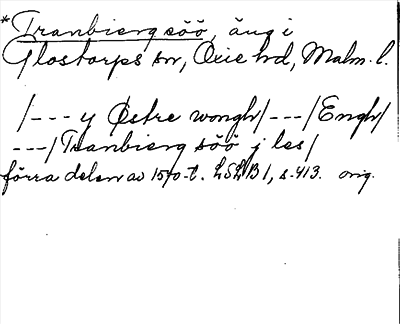 *Tranbiergsöö, äng i
Glostorps sn, Oxie hd, Malm. l.
/--- y Østre wongh/---/Engh/
---/Tranbierg söö j les/
förra delen av 1570-t. LSLB 1, s. 413. orig.